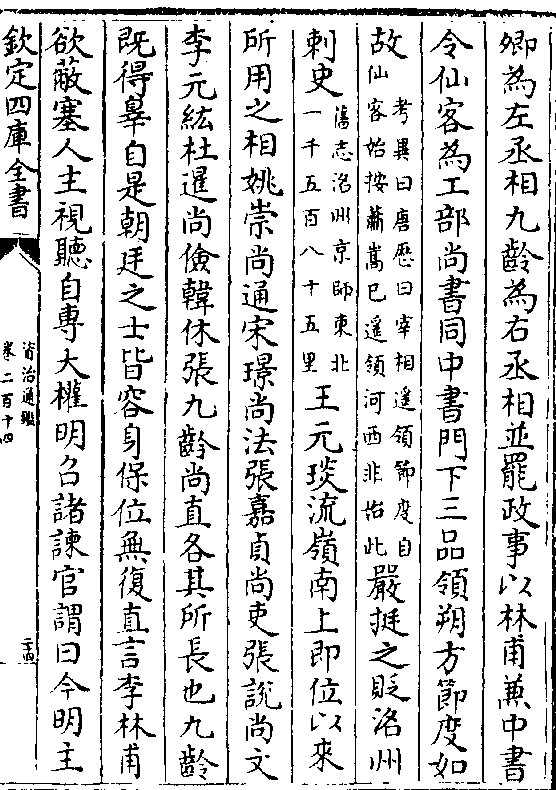 卿為左丞相九齡為右丞相並罷政事以林甫兼中書
令仙客為工部尚書同中書門下三品領朔方節度如
故考異曰唐厯曰宰相遥領節度自仙客始按蕭嵩已遥領河西非始此嚴挺之貶洺州
刺史舊志洺州京師東北一千五百八十五里王元琰流嶺南上即位以來
所用之相姚崇尚通宋璟尚法張嘉貞尚吏張說尚文
李元紘杜暹尚儉韓休張九齡尚直各其所長也九齡
既得辠自是朝廷之士皆容身保位無復直言李林甫
欲蔽塞人主視聽自專大權明召諸諫官謂曰今明主
欽定四庫全書
資治通鑑
卷二百十四
二十四